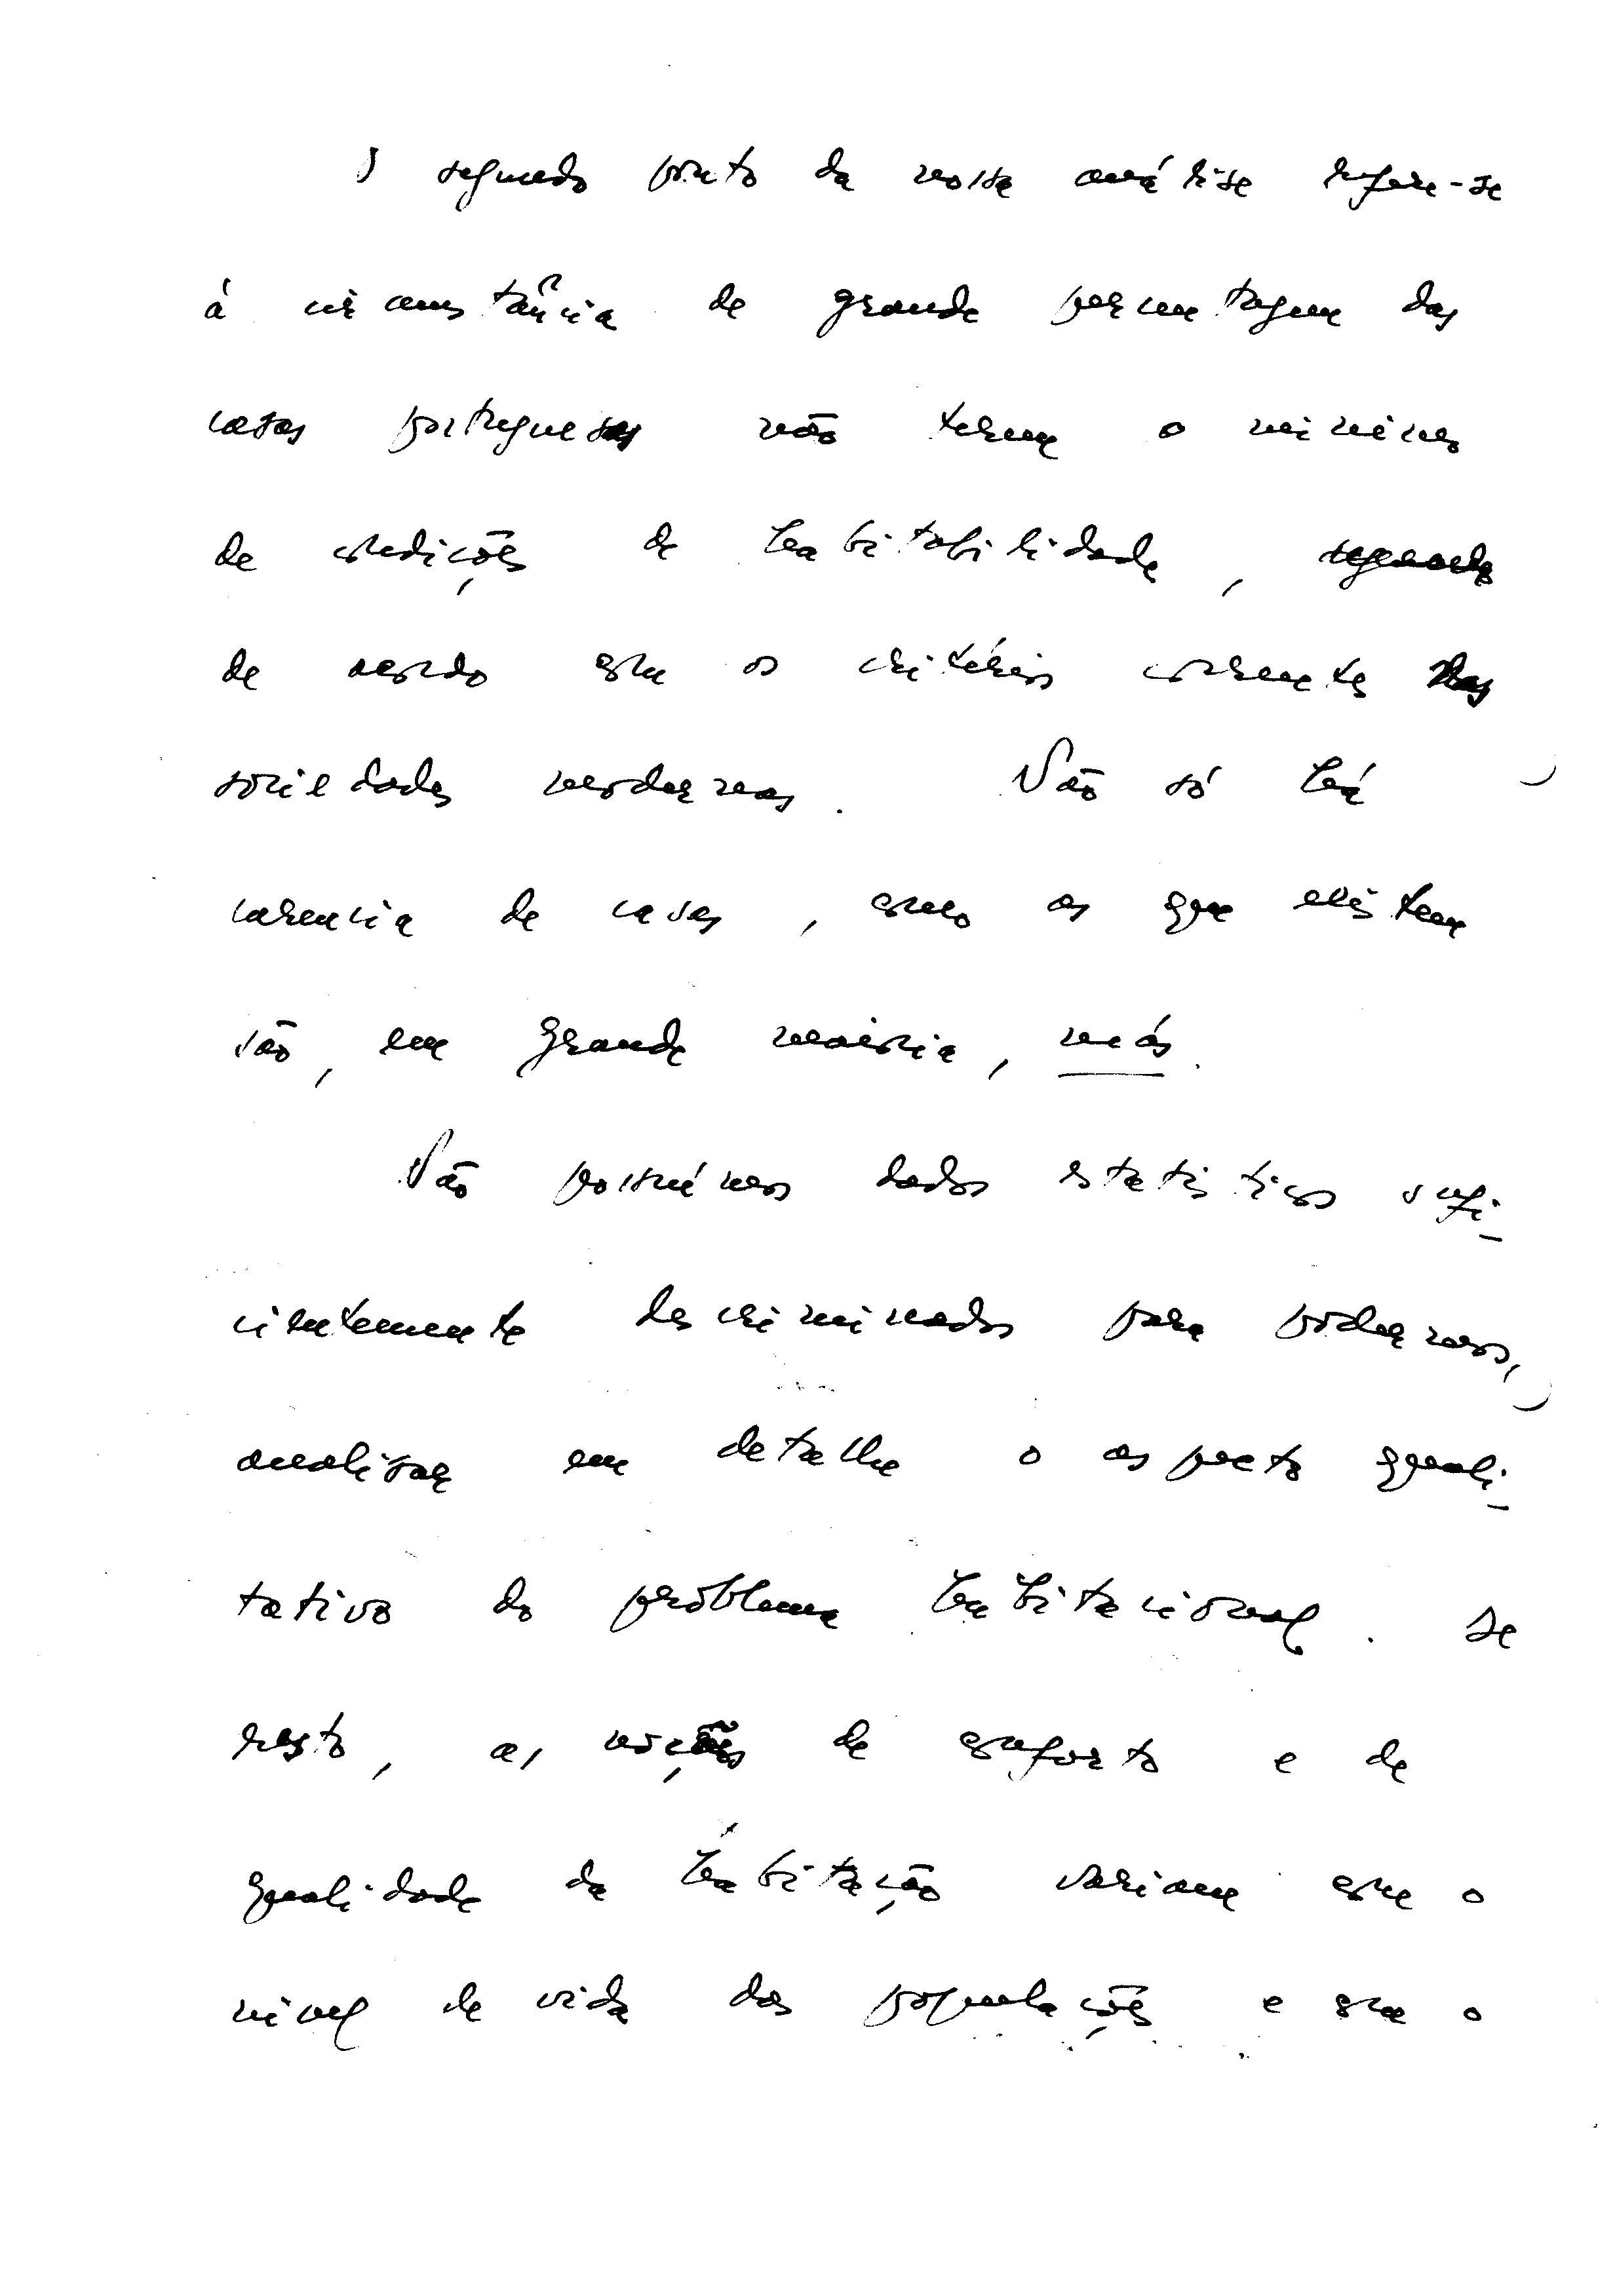 O segundo ponto da nossa análise refere-se
à circunstância de grande percentagem das
casas portuguesas não terem o mínimo
de condições de habitabilidade, segundo
de acordo com os critérios correntes das
sociedades modernas. Não só há
carencia de casas, como as que existem
são, em grande maioria, más.
Não possuímos dados estatisticos sufi-
cientemente descriminados para podermos,
analisar em detalhe o aspecto quali-
tativo do problema habitacional. De
resto, as noções de conforto e de
qualidade da habitação variam com o
nivel de vida das populações e com o